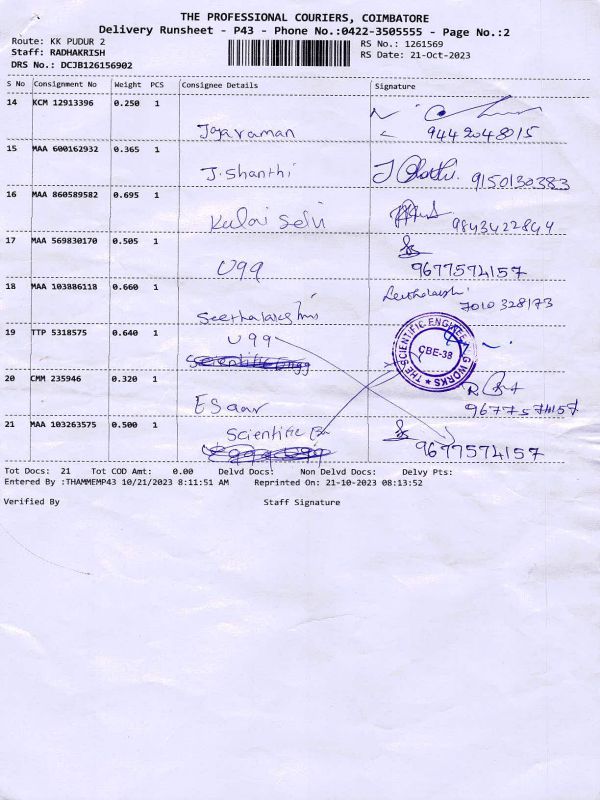 THE PROFESSIONAL COURIERS, COIMBATORE
Delivery Runsheet - P43 - Phone No.:0422-3505555 - Page No.:2
Route: KK PUDUR 2
RS No.: 1261569
Staff: RADHAKRISH
RS Date: 21-Oct-2023
DRS No.: DCJB126156902
S No Consignment No Weight PCS Consignee Details Signature
14 KCM 12913396 0.250 1
Jayaraman 9442048015
15 MAA 600162932 0.365 1
J. Shanthi 9150130383
16 MAA 860589582 0.695 1
Kalai Selvi 9843422844
17 MAA 569830170 0.505 1
U99 9677574157
18 MAA 103886118 0.660 1
7010328173
19 TTP 5318575 0.640 1
U99
THE SCIENTIFIC ENGINEERING WORKS
CBE-38
20 CMM 235946 0.320 1
E Saar 9677574157
21 MAA 103263575 0.500 1
Scientific
9677574157
Tot Docs: 21 Tot COD Amt: 0.00 Delvd Docs: Non Delvd Docs: Delvy Pts:
Entered By :THAMMEMP43 10/21/2023 8:11:51 AM Reprinted On: 21-10-2023 08:13:52
Verified By Staff Signature